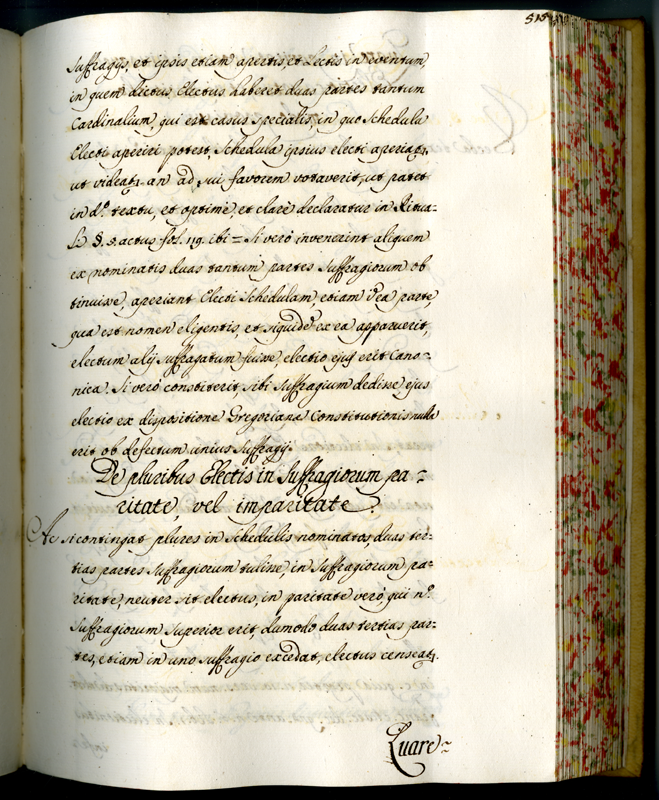 515
Suffragijs, et ipsis etiam apertis, et Lectis in eventum,
in quem dictus Electus haberet duas partes tantum
Cardinalium, qui est casus specialis, in quo Schedula
Electi aperiri potest, Schedula ipsius electi aperiat.,
ut videat. an ad sui favorem votaverit, ut patet
in d.º textu, et optime, et clare declaratur in Ritua-
li §. 5. actus fol. 119. ibi = Si verò invenerint aliquem
ex nominatis duas tantum partes Suffragiorum ob
tinuisse, aperiant Electi Schedulam, etiam ea parte,
qua est nomen eligentis, et siquidem ex ea apparuerit,
electum alij suffragatum fuisse, electio ejus erit Cano-
nica. Si verò constiterit, sibi Suffragium dedisse ejus
electio ex dispositione Gregorianæ Constitutionis nulla
erit ob defectum unius Suffragij.
De pluribus Electis in Suffragiorum pa-
ritate, vel imparitate.
Ac si contingat plures in Schedulis nominatos, duas ter-
tias partes Suffragiorum tulisse, in Suffragiorum pa-
ritate, neuter sit electus, in paritate verò qui n.º
Suffragiorum Superior erit dumodo duas tertias par-
tes, etiam in uno suffragio excedat, electus censeat.
Quare